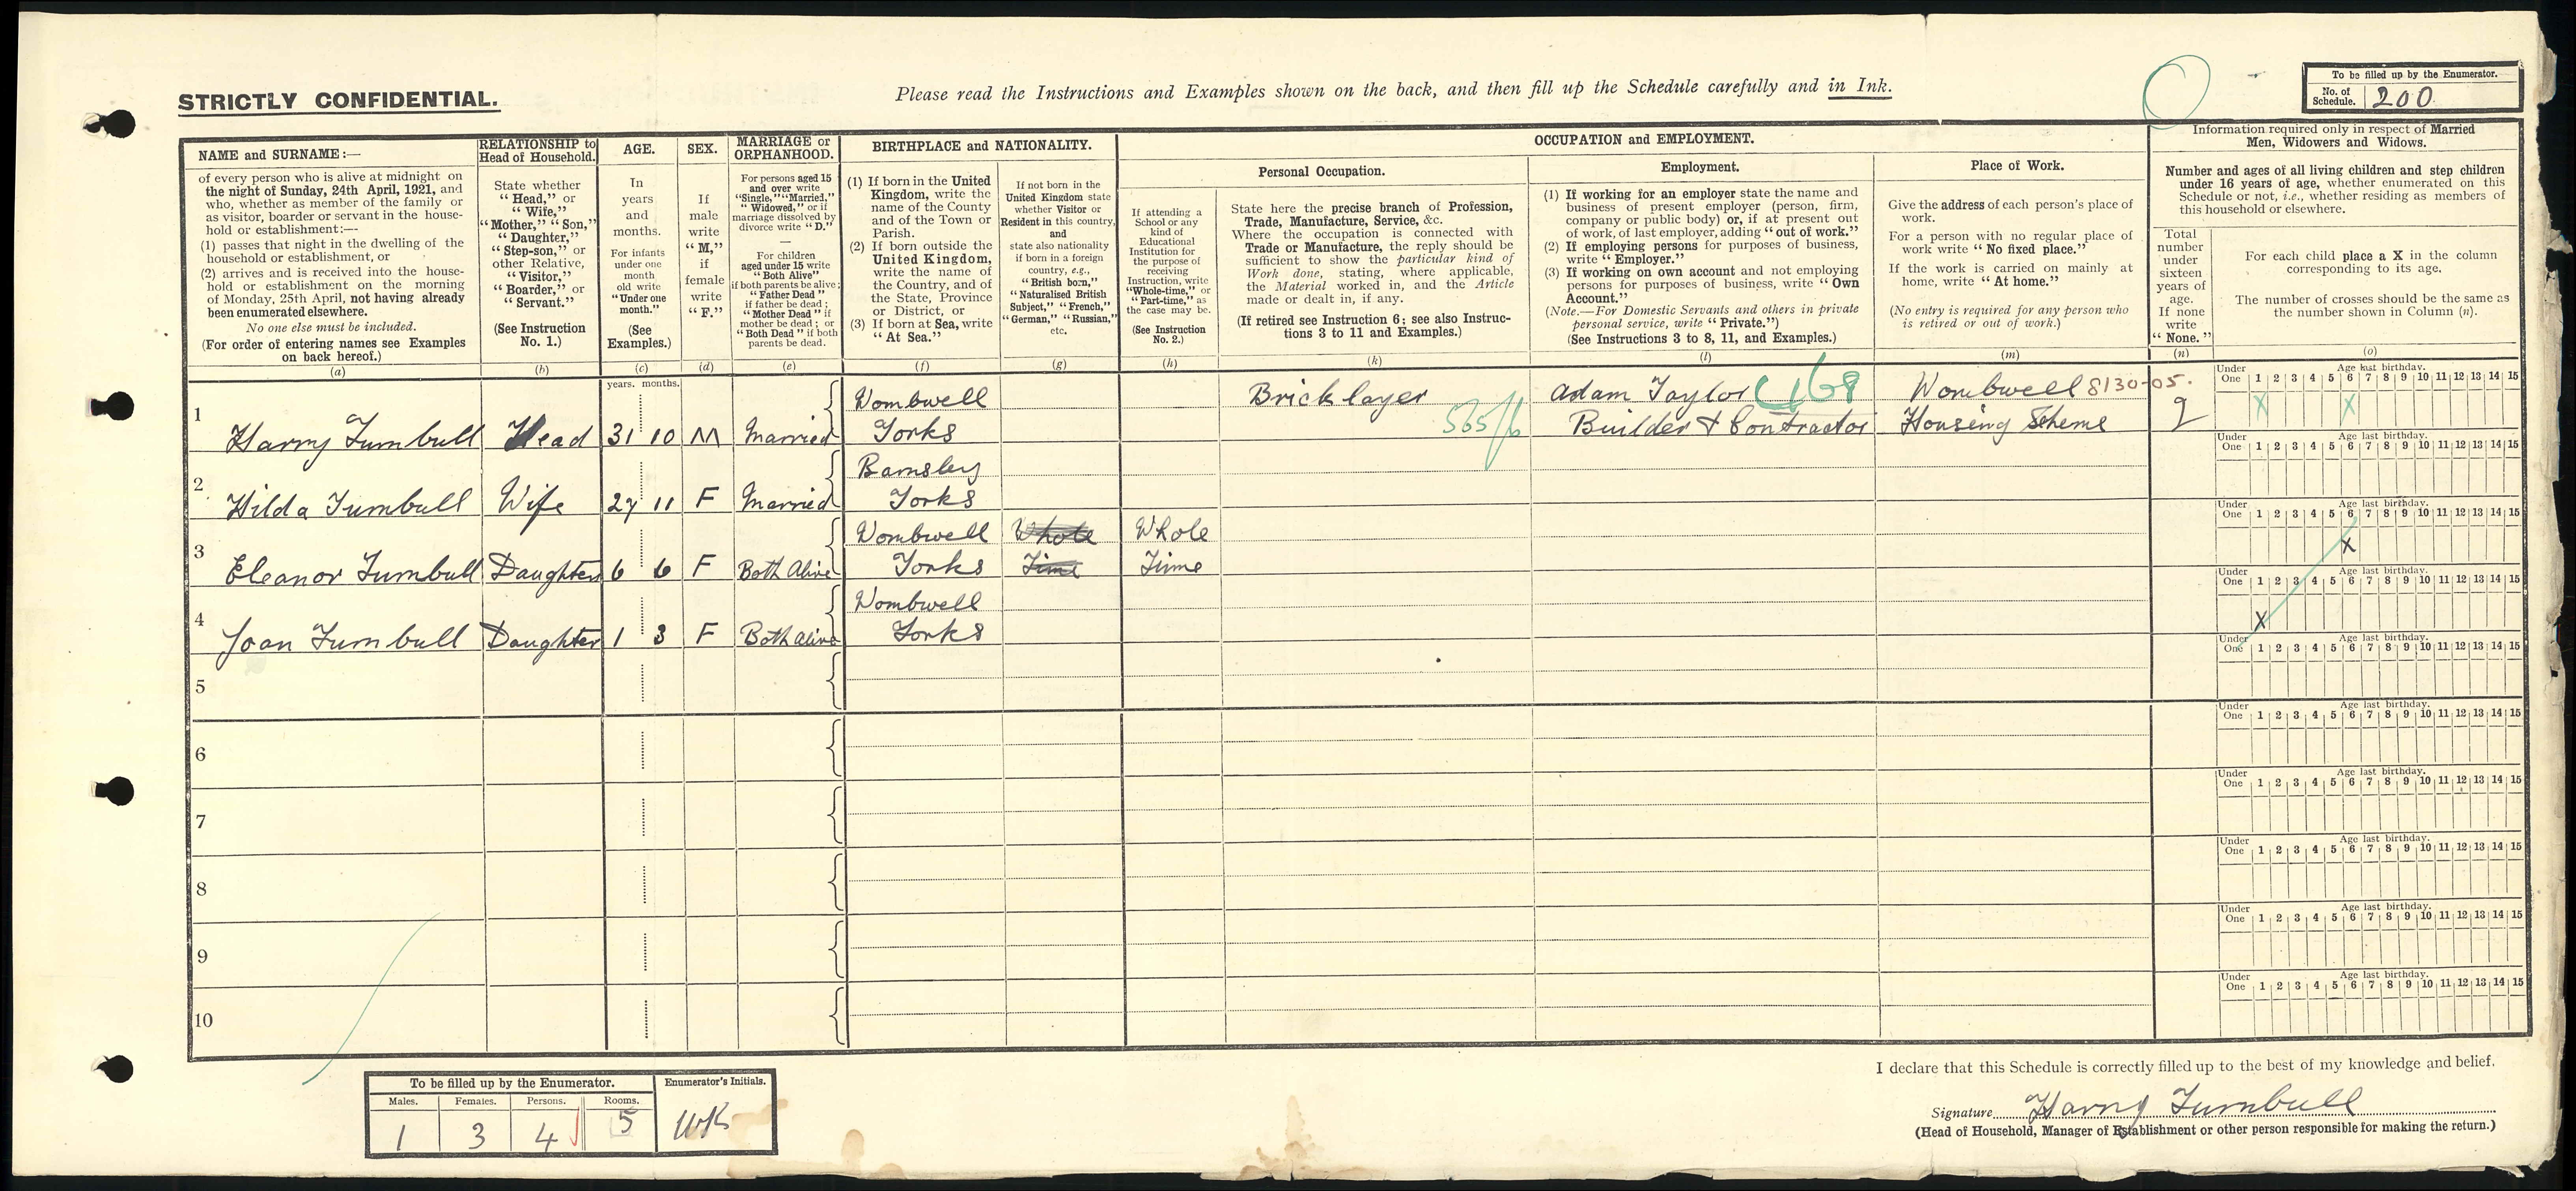 STRICTLY CONFIDENTIAL.
Please read the Instructions and Examples shown on the back, and then fill up the Schedule carefully and in Ink.
To be filled up by the Enumerator.
No. of Schedule. 200
NAME and SURNAME:—
of every person who is alive at midnight on
the night of Sunday, 24th April, 1921, and
who, whether as member of the family or
as visitor, boarder or servant in the house-
hold or establishment:—
(1) passes that night in the dwelling of the
household or establishment, or
(2) arrives and is received into the house-
hold or establishment on the morning
of Monday, 25th April, not having already
been enumerated elsewhere.
No one else must be included.
(For order of entering names see Examples
on back hereof.)
(a)
RELATIONSHIP to
Head of Household.
State whether
"Head," or
"Wife,"
"Mother," "Son,"
"Daughter,"
"Step-son," or
other Relative,
"Visitor,"
"Boarder," or
"Servant."
(See Instruction
No. 1.)
(b)
AGE.
In
years
and
months.
For infants
under one
month
old write
"Under one
month."
(See
Examples.)
(c)
SEX.
If
male
write
"M,"
if
female
write
"F."
(d)
MARRIAGE or
ORPHANHOOD.
For persons aged 15
and over write
"Single," "Married,"
"Widowed," or if
marriage dissolved by
divorce write "D."
—
For children
aged under 15 write
if both parents be alive:
"Both Alive"
"Father Dead"
if father be dead;
"Mother Dead" if
mother be dead; or
"Both Dead" if both
parents be dead.
(e)
BIRTHPLACE and NATIONALITY.
(1) If born in the United
Kingdom, write the
name of the County
and of the Town or
Parish.
(2) If born outside the
United Kingdom,
write the name of
the Country, and of
the State, Province
or District, or
(3) If born at Sea, write
"At Sea."
(f)
If not born in the
United Kingdom state
whether Visitor or
Resident in this country,
and
state also nationality
if born in a foreign
country, e.g.,
"British born,"
"Naturalised British
Subject," "French,"
"German," "Russian,"
etc.
(g)
OCCUPATION and EMPLOYMENT.
Personal Occupation.
If attending a
School or any
kind of
Educational
Institution for
the purpose of
receiving
Instruction, write
"Whole-time," or
"Part-time," as
the case may be.
(See Instruction
No. 2.)
(h)
State here the precise branch of Profession,
Trade, Manufacture, Service, &c.
Where the occupation is connected with
Trade or Manufacture, the reply should be
sufficient to show the particular kind of
Work done, stating, where applicable,
the Material worked in, and the Article
made or dealt in, if any.
(If retired see Instruction 6; see also Instruc-
tions 3 to 11 and Examples.)
(k)
Employment.
(1) If working for an employer state the name and
business of present employer (person, firm,
company or public body) or, if at present out
of work, of last employer, adding "out of work."
(2) If employing persons for purposes of business,
write "Employer."
(3) If working on own account and not employing
persons for purposes of business, write "Own
Account."
(Note.—For Domestic Servants and others in private
personal service, write "Private.")
(See Instructions 3 to 8, 11, and Examples.)
(l)
Place of Work.
Give the address of each person's place of
work.
For a person with no regular place of
work write "No fixed place."
If the work is carried on mainly at
home, write "At home."
(No entry is required for any person who
is retired or out of work.)
(m)
Information required only in respect of Married
Men, Widowers and Widows.
Number and ages of all living children and step children
under 16 years of age, whether enumerated on this
Schedule or not, i.e., whether residing as members of
this household or elsewhere.
Total
number
under
sixteen
years of
age.
If none
write
"None."
(n)
For each child place a X in the column
corresponding to its age.
The number of crosses should be the same as
the number shown in Column (n).
(o)
years. months.
1 Harry Turnbull Head 31 10 M Married Wombwell Yorks Bricklayer 565/6 Adam Taylor Builder & Contractor Wombwell Housing Scheme 8130-05. 2 X X
Under One Age last birthday. 1 2 3 4 5 6 7 8 9 10 11 12 13 14 15
2 Hilda Turnbull Wife 27 11 F Married Barnsley Yorks
Under One Age last birthday. 1 2 3 4 5 6 7 8 9 10 11 12 13 14 15
3 Eleanor Turnbull Daughter 6 6 F Both Alive Wombwell Yorks Whole Time Whole Time X
Under One Age last birthday. 1 2 3 4 5 6 7 8 9 10 11 12 13 14 15
4 Joan Turnbull Daughter 1 3 F Both Alive Wombwell Yorks X
Under One Age last birthday. 1 2 3 4 5 6 7 8 9 10 11 12 13 14 15
5
Under One Age last birthday. 1 2 3 4 5 6 7 8 9 10 11 12 13 14 15
6
Under One Age last birthday. 1 2 3 4 5 6 7 8 9 10 11 12 13 14 15
7
Under One Age last birthday. 1 2 3 4 5 6 7 8 9 10 11 12 13 14 15
8
Under One Age last birthday. 1 2 3 4 5 6 7 8 9 10 11 12 13 14 15
9
Under One Age last birthday. 1 2 3 4 5 6 7 8 9 10 11 12 13 14 15
10
Under One Age last birthday. 1 2 3 4 5 6 7 8 9 10 11 12 13 14 15
To be filled up by the Enumerator. Enumerator's Initials.
Males. Females. Persons. Rooms.
1 3 4 5
I declare that this Schedule is correctly filled up to the best of my knowledge and belief.
Signature Harry Turnbull
(Head of Household, Manager of Establishment or other person responsible for making the return.)